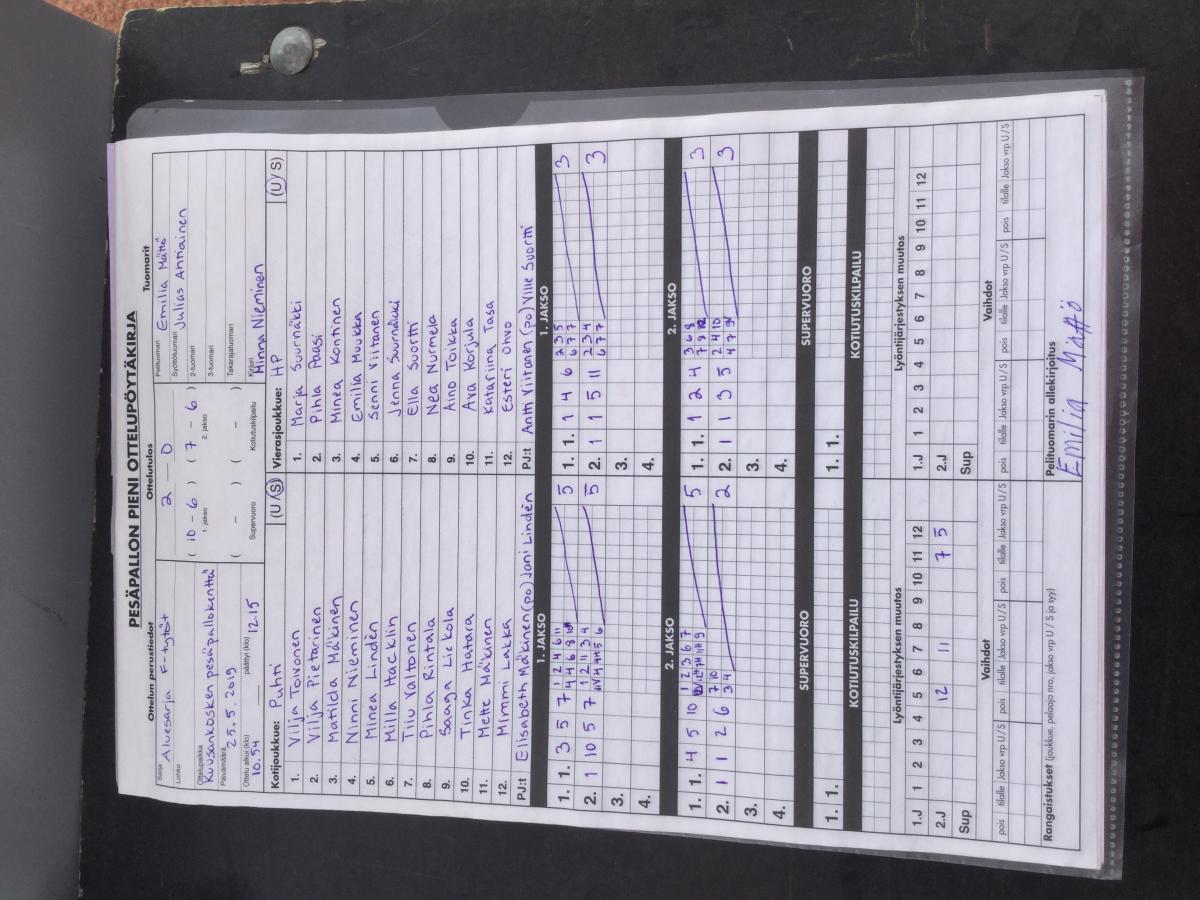 PESÄPALLON PIENI OTTELUPÖYTÄKIRJA
Ottelun perustiedot Ottelutulos Tuomarit
Sarja Aluesarja F-tytöt
Lohko
Ottelupaikka Kuusankosken pesäpallokenttä
Päivämäärä 25.5.2019
Ottelu alkoi (klo) 10.54 päättyi (klo) 12.15
2 – 0
( 10 – 6 ) ( 7 – 6 )
1. jakso 2. jakso
( – ) ( – )
Supervuoro Kotiutuskilpailu
Pelituomari Emilia Mättö
Syöttötuomari Julias Anttiainen
2-tuomari
3-tuomari
Takarajatuomari
Kirjuri Minna Nieminen
Kotijoukkue: Puhti (U / S)
1. Vilja Toivonen
2. Vilja Pietarinen
3. Matilda Mäkinen
4. Ninni Nieminen
5. Minea Lindén
6. Milla Hacklin
7. Tiiu Valtonen
8. Pihla Rintala
9. Saaga Liekola
10. Tinka Hatara
11. Mette Mäkinen
12. Mimmi Lakka
PJ:t Elisabeth Mäkinen (po) Jani Lindén
Vierasjoukkue: HP (U / S)
1. Marja Suurnäkki
2. Pihla Paasi
3. Minea Kontinen
4. Emilia Muukka
5. Senni Viitanen
6. Jenna Suurnäkki
7. Ella Suortti
8. Nea Nurmela
9. Aino Toikka
10. Ava Korjula
11. Katariina Tasa
12. Esteri Ohvo
PJ:t Antti Viitanen (po) Ville Suortti
1. JAKSO 1. JAKSO
1. 1. 3 5 7 1 2 4 6 11 5 1. 1. 1 4 6 2 3 5 3
4 4 6 8 6 7 7
2. 1 10 5 7 1 2 11 3 4 5 2. 1 1 5 11 2 3 4 3
6 7 7
3. 3.
4. 4.
2. JAKSO 2. JAKSO
1. 1. 4 5 10 1 2 3 6 7 5 1. 1. 1 2 4 3 6 8 3
7 9
2. 1 1 2 6 7 10 2 2. 1 1 3 5 2 4 10 3
3 4 4 7 9
3. 3.
4. 4.
SUPERVUORO SUPERVUORO
1. 1. 1. 1.
KOTIUTUSKILPAILU KOTIUTUSKILPAILU
Lyöntijärjestyksen muutos Lyöntijärjestyksen muutos
1.J 1 2 3 4 5 6 7 8 9 10 11 12 1.J 1 2 3 4 5 6 7 8 9 10 11 12
2.J 12 11 7 5 2.J
Sup Sup
Vaihdot Vaihdot
pois tilalle Jakso vrp U / S pois tilalle Jakso vrp U / S pois tilalle Jakso vrp U / S pois tilalle Jakso vrp U / S pois tilalle Jakso vrp U / S pois tilalle Jakso vrp U / S
Rangaistukset (joukkue, pelaaja nro, jakso vrp U / S ja syy) Pelituomarin allekirjoitus
Emilia Mättö